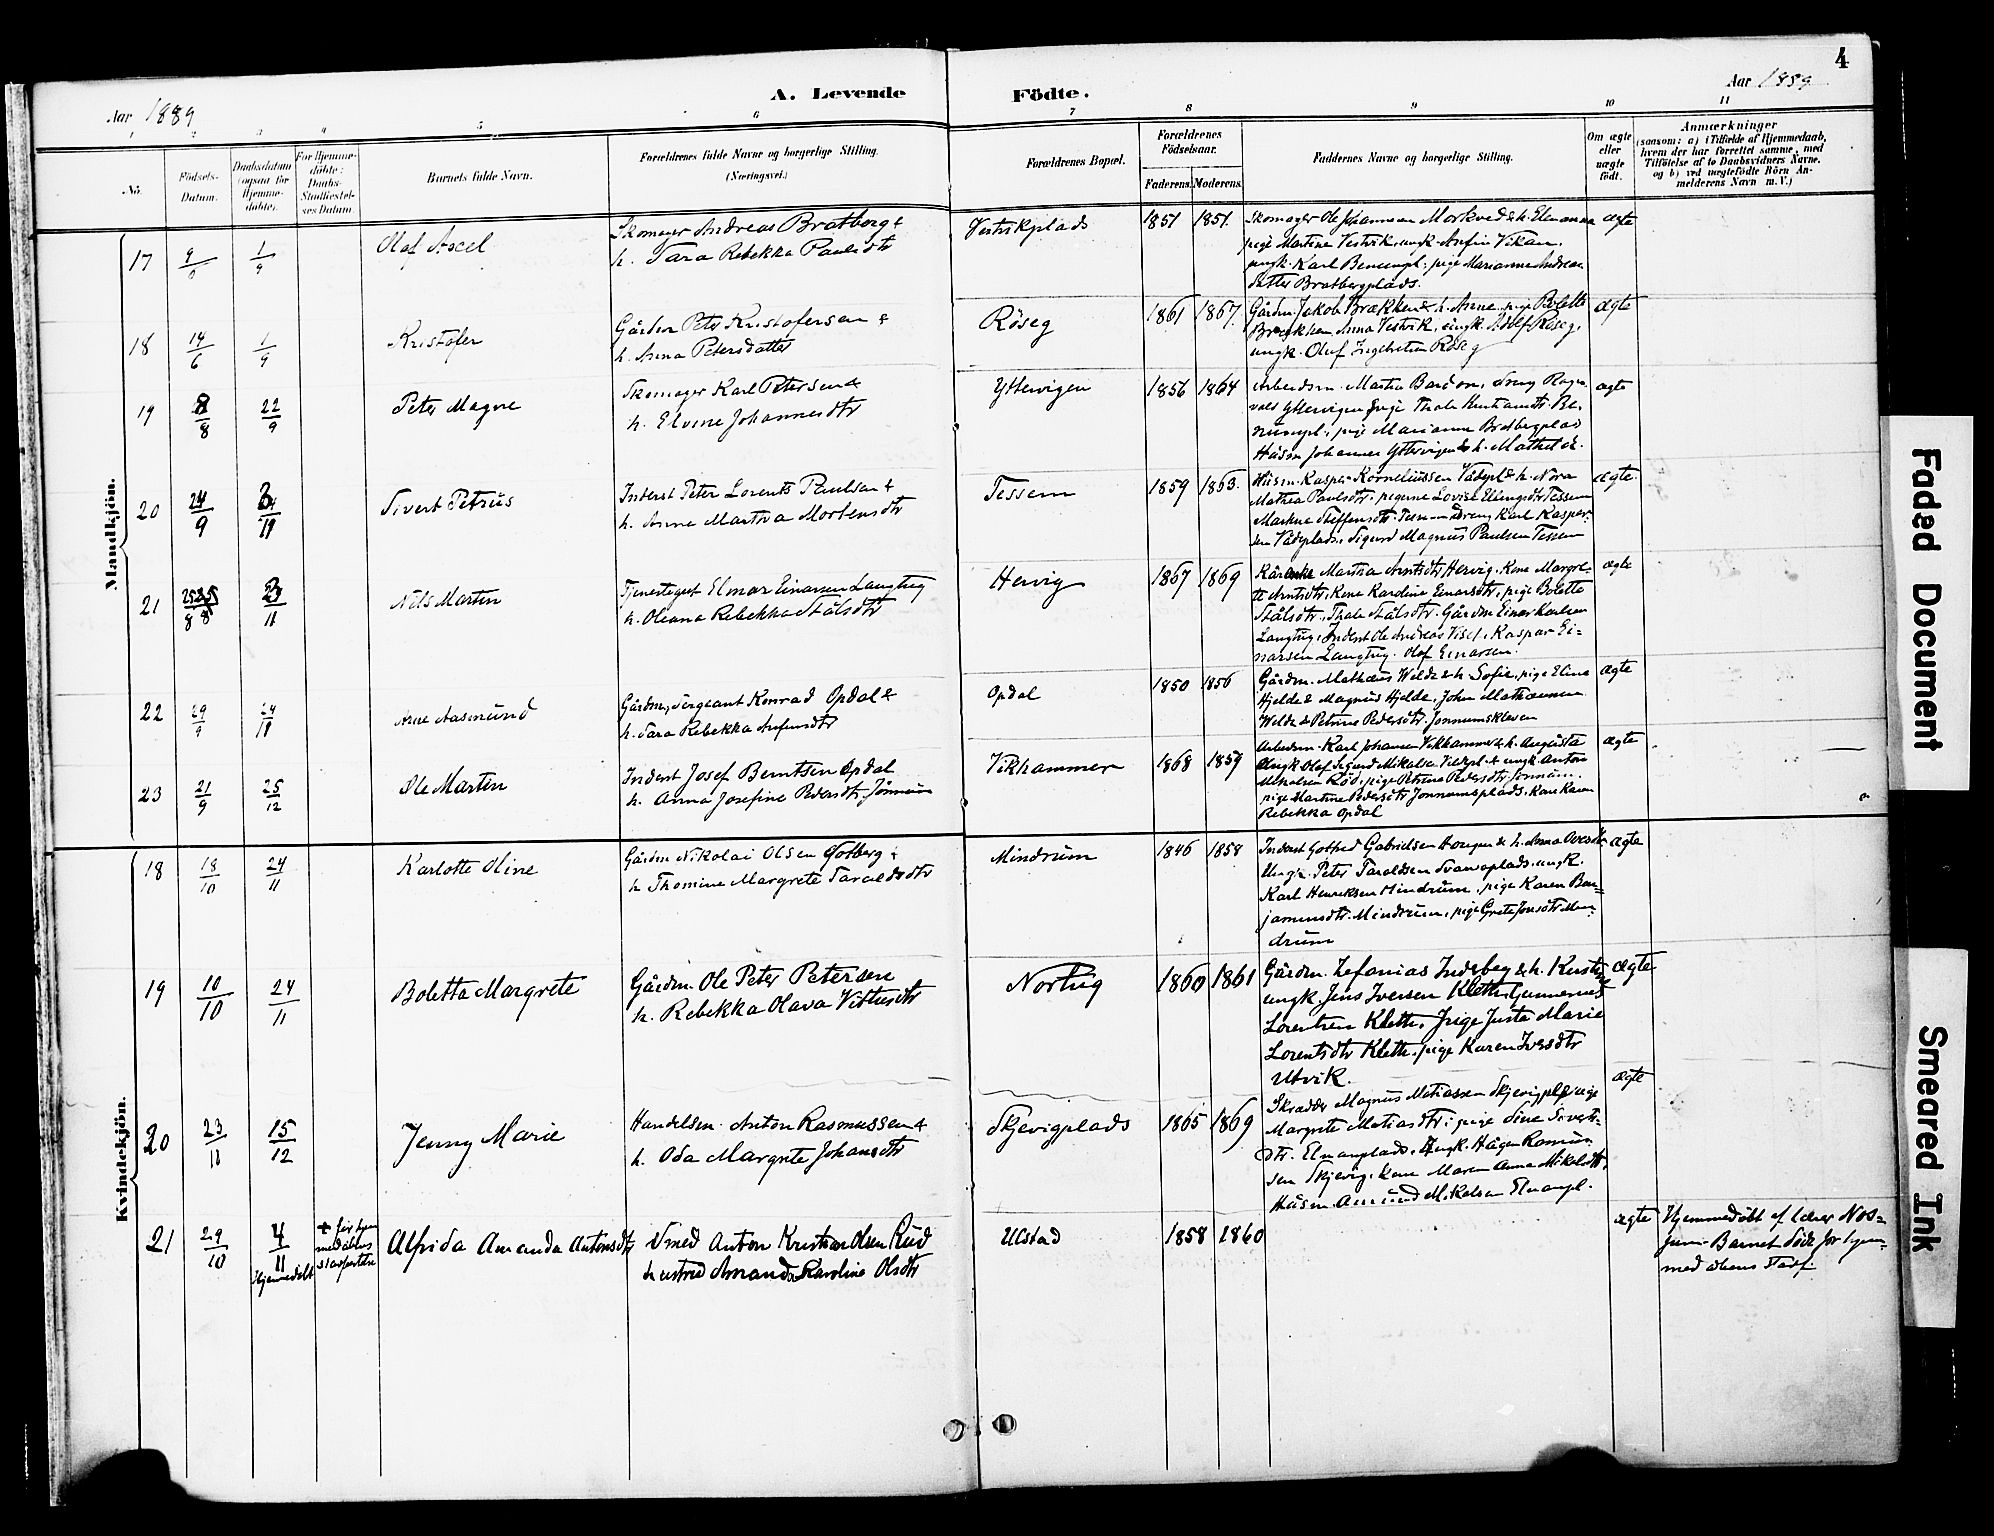 4
Aar 1889
A. Levende Födte.
Aar 1889
1 2 3 4 5 6 7 8 9 10 11
No.
Födsels-Datum.
Daabsdatum (ogsaa for Hjemme-döbte).
For Hjemme-döbte: Daabs-Stadfæstel-ses Datum.
Barnets fulde Navn.
Forældrenes fulde Navne og borgerlige Stilling. (Næringsvei.)
Forældrenes Bopæl.
Forældrenes Födselsaar.
Faderens. Moderens.
Faddernes Navne og borgerlige Stilling.
Om ægte eller uægte födt.
Anmærkninger
(saasom: a) i Tilfælde af Hjemmedaab, hvem der har forrettet samme, med Tilföielse af to Daabsvidners Navne, og b) ved uægtefödte Börn Anmelderens Navn m. V.)
Mandkjön.
17 1/9 Olaf Axel
Skomager Andreas Bratberg &
h. Sara Rebekka Paulsdtr
Vestvikplads 1851 1851
Skomager Ole Johannesen Morkved & h. Elenanna
pige Martine Vestvik, ungk. Arfin Vikan,
ungk. Karl Benumpl., pige Marianne Andreas
datter Bratbergplads.
ægte
18 14/6 1/9 Kristofer
Gårdm Peter Kristofersen &
h. Anna Petersdatter
Röseg 1861 1867
Gårdm. Jakob Brækken & h. Anne, pige Bolette
Brækken, Anna Vestvik, ungk. Adolf Röseg,
ungk. Oluf Ingebretsen Röseg
ægte
19 8/8 22/9 Peter Magne
Skomager Karl Petersen &
h. Elvine Johannesdtr
Yttervigen 1856 1864
Arbeidsm. Martin Bardon, Dreng Ragn-
vald Yttervigen, pige Thale Kristiansdtr Be-
numpl., pige Marianne Bratbergplads
Husm Johannes Yttervigen & h. Mathilde.
ægte
20 24/9 24/11 Sivert Petrus
Inderst Peter Lorents Paulsen &
h. Anne Martha Mortensdtr
Tessem 1859 1863.
Husm. Kasper Korneliussen Vådepl & h. Nora
Mathea Paulsdtr, pigerne Lovise Ellingsdtr Tessem
Martine Steffensdtr Tessem Dreng Karl Kasper-
sen Vådeplads, Sigurd Magnus Paulsen Tessem
ægte
21 25/8 Nils Martin
Tjenestegut Elmar Einarsen Langtug
h. Oleana Rebekka Stålsdtr
Hervig 1867 1869
Kårenke Martha Arntsdtr Hervig. Kone Margre-
te Arntsdtr, Kone Kardine Einarsdtr, pige Bolette
Stålsdtr, Thale Stålsdtr. Gårdm Einar Karlsen
Langtug, Inderst Ole Andreas Vist, Kaspar Ei-
narsen Langtug. Olaf Einarsen.
ægte
22 29/9 24/11 Arne Aasmund
Gårdm, Sergeant Konrad Opdal &
h. Sara Rebekka Arfinsdtr
Opdal 1850 1856
Gårdm. Mathæus Welde & h. Sofie, pige Eline
Hjelde & Magnus Hjelde, John Mathæusen
Welde & Petrine Pedersdtr Jonnumskleven
ægte
23 21/9 25/12 Ole Martin
Inderst Josef Berntsen Opdal
h. Anna Josefine Pedersdtr Jönnum
Vikhammer 1868 1859
Arbeidsm. Karl Johansen Vikhammer & h. Augusta
Ungk Olaf Sigurd Mikelsen Vikepl & ungk Anton
Mikalsen Röd, pige Petrine Pedersdtr Jönnum.
pige Martine Pedersdtr Jonnumsplads, Kone Karen
Rebekka Opdal
ægte
Kvindekjön.
18 18/10 24/11 Karlotte Oline
Gårdm Nikolai Olsen
h Thomine Margrete Taraldsdtr
Mindrum 1846 1858
Inderst Gotfred Gabrielsen Haugen & h. Anna
Ungk. Peter Taraldsen Svanoplads, ungk.
Karl Henriksen Mindrum, pige Karen Ben-
jaminsdtr Mindrum, pige Grete Jonsdtr Min-
drum
ægte
19 10/10 24/11 Boletta Margrete
Gårdm. Ole Peter Petersen
h. Rebekka Olava Vittusdtr
Nortug 1860 1861
Gårdm. Zefanias Inderberg & h. Kirstine
ungk. Jens Iversen Kleth, Gunnerius
Lorentsen Kleth, Pige Justa Marie
Lorentsdtr Kleth, pige Karen Iversdtr
Utvik.
ægte
20 23/11 15/12 Jenny Marie
Handelsm. Anton Rasmussen &
h. Oda Margrete Johansdtr
Skjevigplads 1865 1869
Skrædder Magnus Matiassen Skjevigpl, pige
Margrete Matiasdtr, pige Sine Siverts-
dtr. Elnanplads, Ungk. Hågen Rasmus-
sen Skjevig, Kone Maren Anna Mikelsdtr,
Husm. Amund Mikelsen Elnanpl.
ægte
21 29/10 4/11 Hjemmedøbt
+ før hjem
medåbens
stadfæstelse
Alfrida Amanda Antonsdtr
Smed Anton Kristian Olsen Rud
h ustru Amanda Karoline Olsdtr
Ulstad 1858 1860
ægte
Hjemmedøbt af lærer Nos-
sum. Barnet døde før hjem-
medåbens stadf.
Faded Document
Smeared Ink